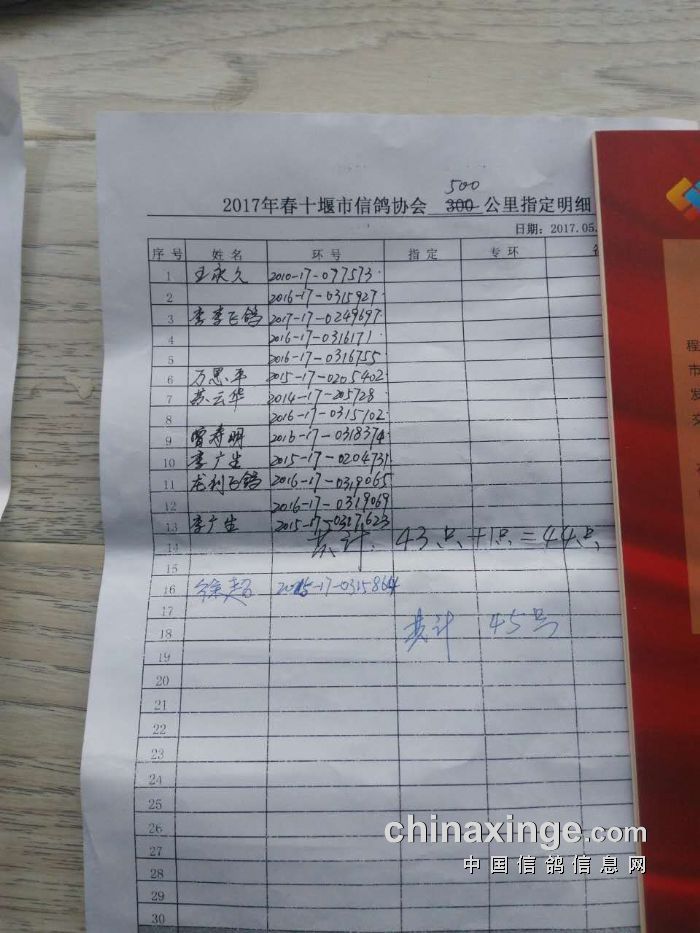 500
2017年春十堰市信鸽协会 300 公里指定明细
日期: 2017.05.
序号 姓名 环号 指定 专环
1 王永久 2010-17-077573
2 2016-17-0315927
3 李李飞鸽 2017-17-0249697
4 2016-17-0316171
5 2016-17-0316755
6 万思平 2015-17-0205402
7 苏云华 2014-17-205728
8 2016-17-0315102
9 曾寿明 2016-17-0318374
10 李广生 2015-17-0204731
11 龙利飞鸽 2016-17-0319065
12 2016-17-0319069
13 李广生 2015-17-0307623
14 共计: 43只+1只=44只
15
16 徐超 2015-17-0315864
17
18 共计 45号
19
20
21
22
23
24
25
26
27
28
29
30
程
市
发
交
chinaxinge.com
中国信鸽信息网